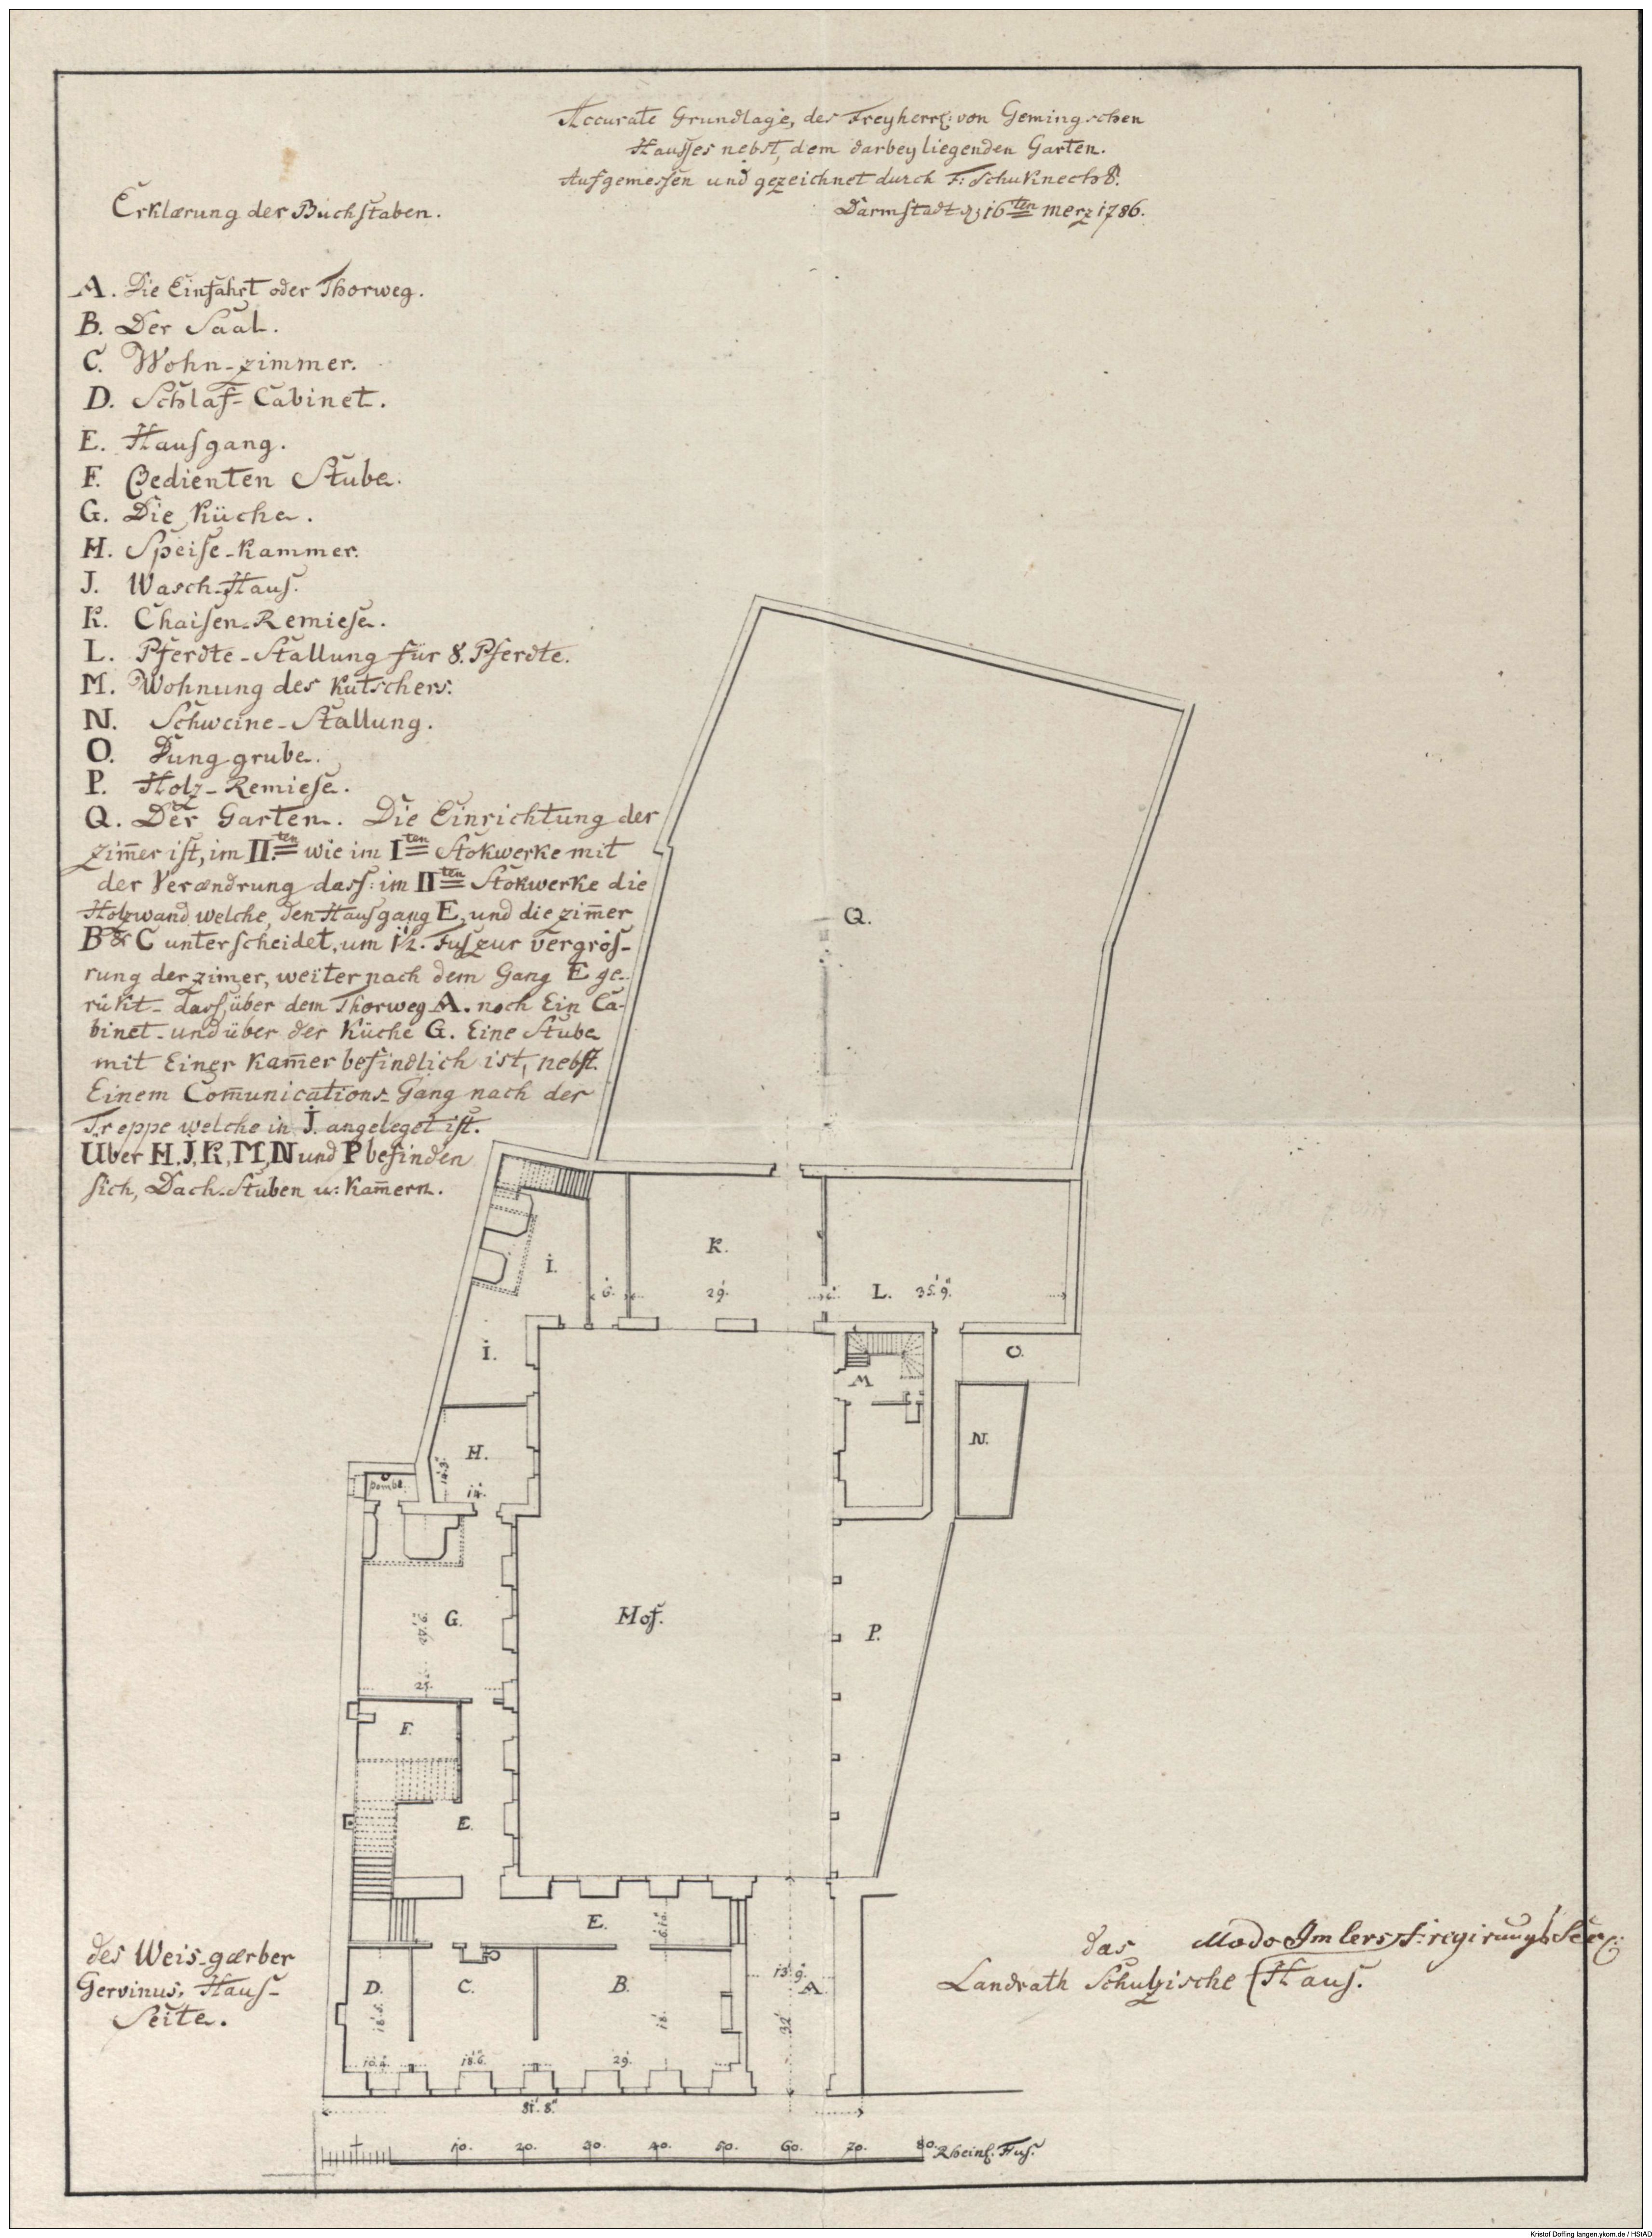 Accurate Grundlage, des Freyherrl: von Gemingschen
Hausses nebst, dem darbey liegenden Garten.
Aufgemessen und gezeichnet durch F: Schuknecht
Darmstadt 16ten Merz 1786.
Erklærung der Buchstaben.
A. Die Einfahrt oder Thorweg.
B. Der Saal.
C. Wohn-zimmer.
D. Schlaf-Cabinet.
E. Hausgang.
F. Bedienten Stube.
G. Die Küche.
H. Speise-Kammer.
J. Wasch-Haus.
K. Chaisen-Remiese.
L. Pferdte-Stallung für 8. Pferdte.
M. Wohnung des Kutschers.
N. Schweine-Stallung.
O. Dung grube.
P. Holz-Remiese.
Q. Der Garten. Die Einrichtung der
zim̄er ist, im II.ten wie im Iten Stokwerke mit
der Verændrung dass: im IIten Stokwerke die
Holzwand welche, den Hausgang E, und die zim̄er
B & C unterscheidet, um 1½. Fus zur vergrös-
rung der zimer, weiter nach dem Gang E ge-
rükt - dass, über dem Thorweg A. noch Ein Ca-
binet - und über der Küche G. Eine Stube
mit Einer Kam̄er befindlich ist, nebst.
Einem Com̄unications-Gang nach der
Treppe welche in J. angeleget ist.
Über H. J, K, M, N und P befinden
sich, Dach-Stuben u: Kam̄ern.
Q.
K.
J.
6.
29.
L. 35.' 9."
J.
O.
M
N.
H.
14.
Pombe.
G.
Hof.
P.
25.
F.
E.
E.
des Weis-gærber
Gervinus, Haus-
Seite.
das Modo Imlers
Landrath Schulzische Haus.
D.
C.
B.
13.' 9."
A.
18.
32.
10.
18.' 6."
29.
81.' 8."
10. 20. 30. 40. 50. 60. 70. 80. Rheinl. Fus.
Kristof Doffing langen.ykom.de / HStAD